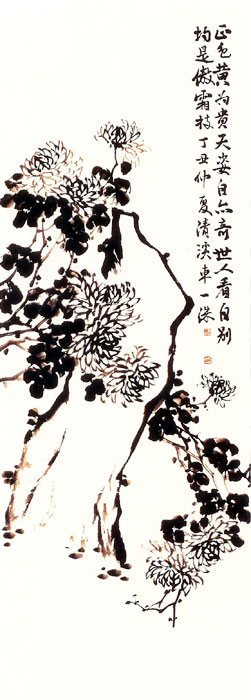 正色黄为贵天姿白亦奇世人看自别
均是傲霜枝丁丑仲夏清溪车一